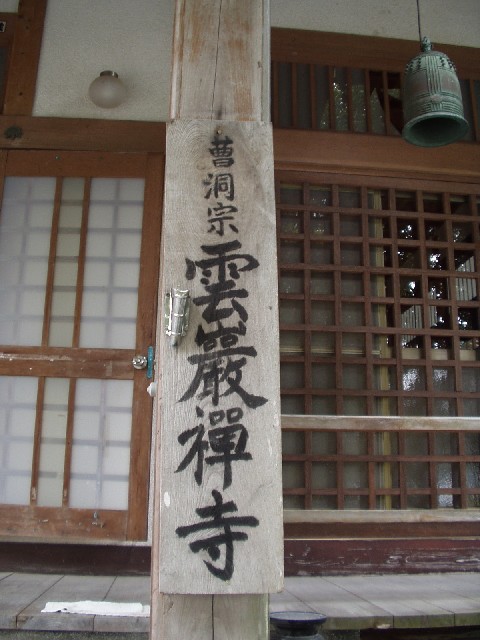 曹洞宗雲巖禅寺